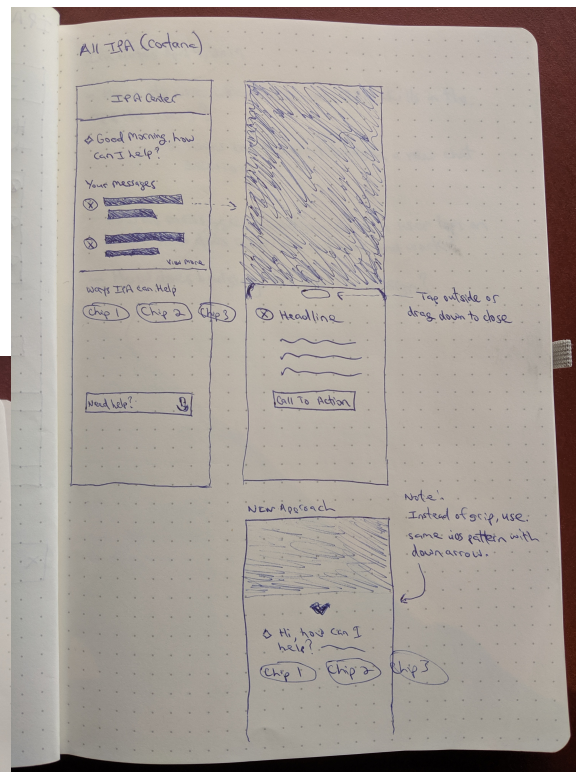 All IPA (Cortana)
IPA Center
Good Morning, how
can I help?
Your messages
View more
Ways IPA can Help
Chip 1 Chip 2 Chip 3
Need help?
Tap outside or
drag down to close
Headline
Call To Action
New Approach
Note:
Instead of grip, use
same ios pattern with
down arrow.
Hi, how can I
help?
Chip 1 Chip 2 Chip 3